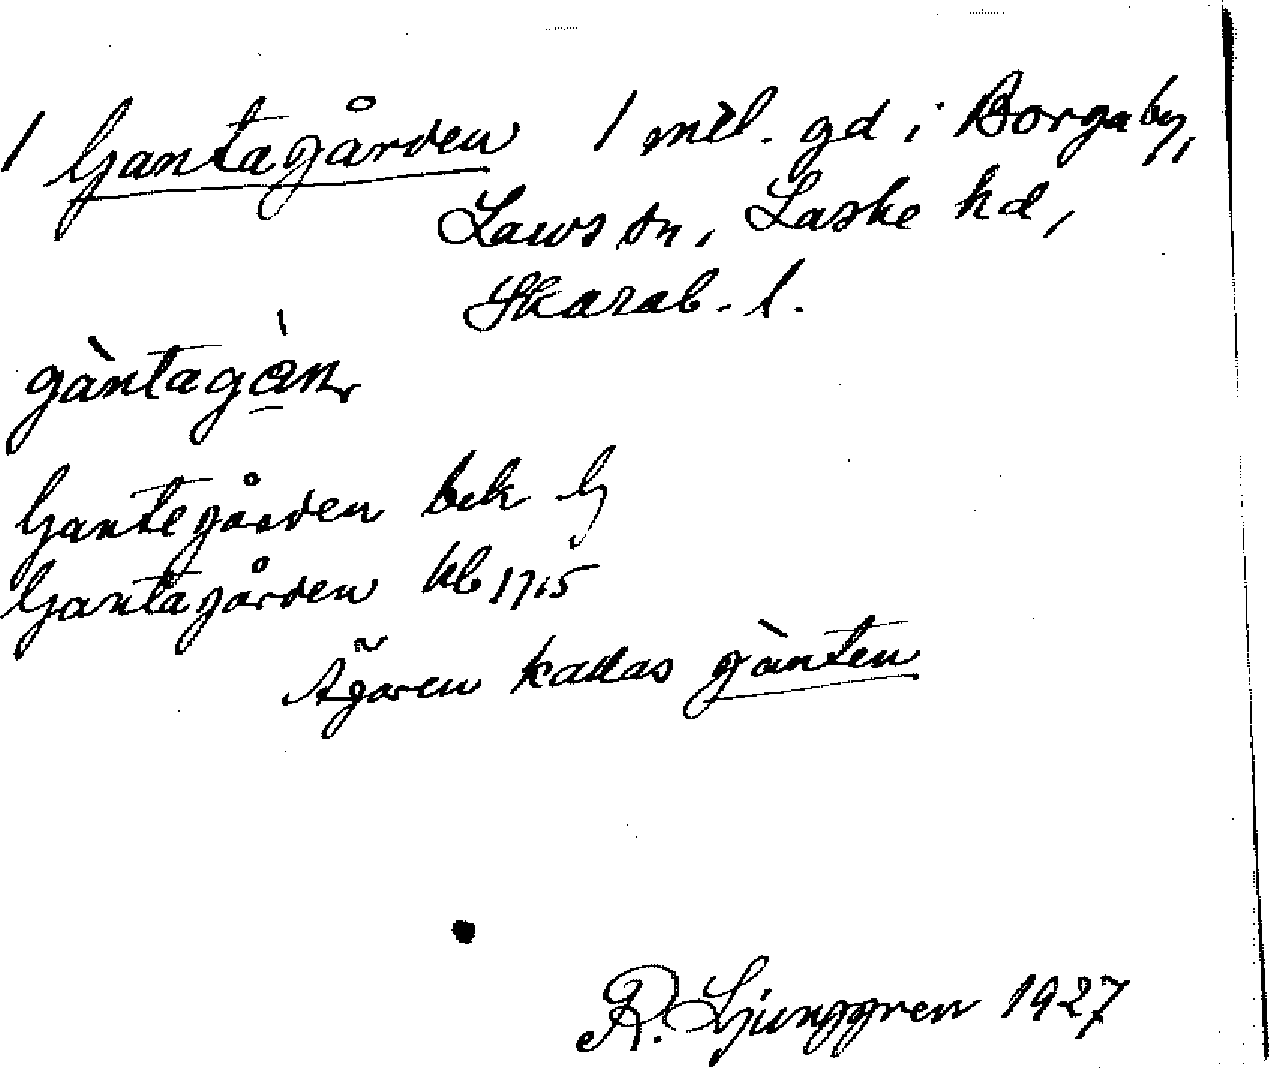 1 Gantagården 1 mtl. gd i Borga by,
Laws sn, Laske hd,
Skarab. l.
gàntagàn
Gantegården bek G
Gantagården kb 1715
Ägaren kallas gànten
R. Ljunggren 1927